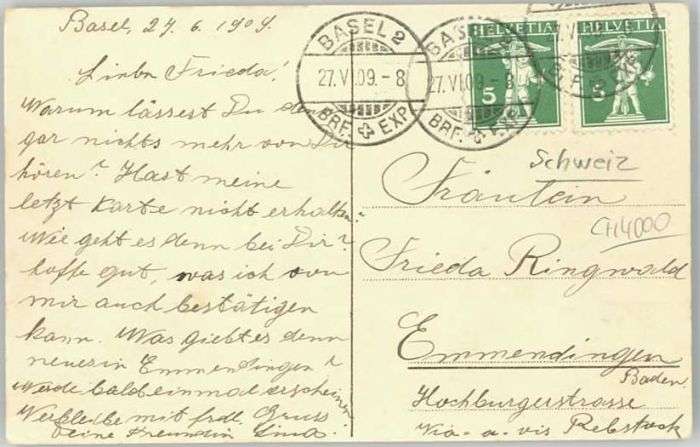 Basel, 27. 6. 1909.
Liebe Frieda!
Warum lässest Du denn
gar nichts mehr von Dir
hören? Hast meine
letzt Karte nicht erhalten?
Wie geht es denn bei Dir?
hoffe gut, was ich von
mir auch bestätigen
kann. Was giebt es denn
neues in Emmendingen?
Werde bald einmal erscheinen
Verbleibe mit frdl. Gruss
Deine Freundin Lina.
BASEL 2
27. VI. 09. - 8
BRF. EXP.
BASEL 2
27. VI. 09. - 8
BRF. EXP.
HELVETIA
5
HELVETIA
5
Schweiz
Fräulein
CH4000
Frieda Ringwald
Emmendingen
Baden.
Hochburgerstrasse
Via-a-vis Rebstock